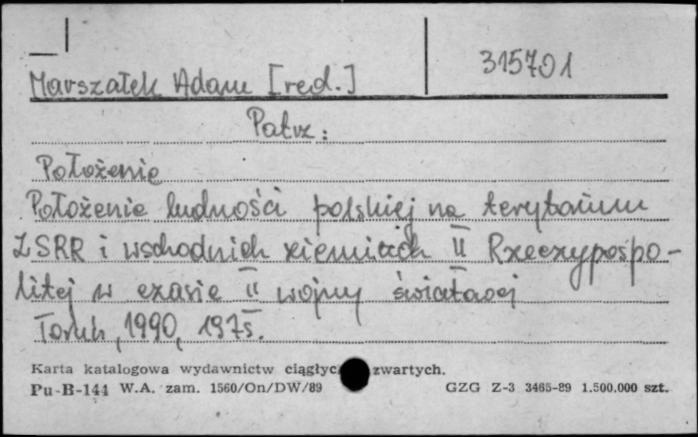 315701
Marszałek Adam [red.]
Patrz:
Położenie
Położenie ludności polskiej na terytorium
ZSRR i wschodnich ziemiach II Rzeczypospo-
litej w czasie II wojny światowej
Toruń, 1990, 197s.
Karta katalogowa wydawnictw ciągłyc zwartych.
Pu-B-144 W.A. zam. 1560/On/DW/89 GZG Z-3 3465-89 1.500.000 szt.